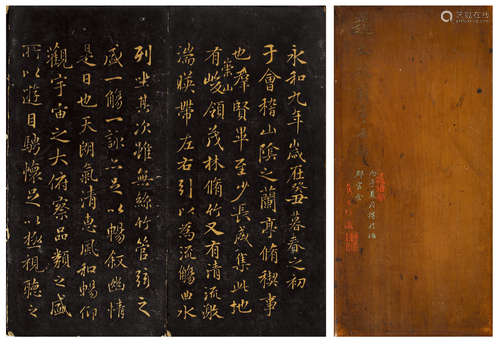 永和九年歲在癸丑暮春之初
于會稽山陰之蘭亭脩稧事
也羣賢畢至少長咸集此地
有崇山峻領茂林脩竹又有清流激
湍暎帶左右引以為流觴曲水
列坐其次雖無絲竹管弦之
盛一觴一詠亦足以暢叙幽情
是日也天朗氣清惠風和暢仰
觀宇宙之大俯察品類之盛
所以遊目騁懷足以極視聽之